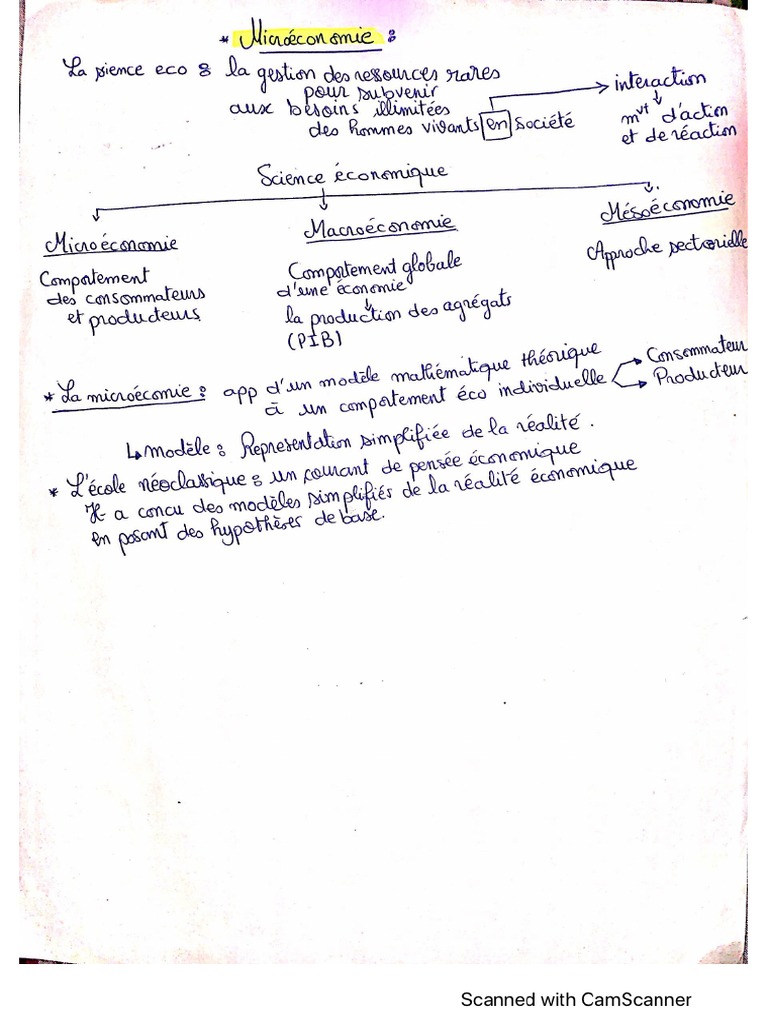 * Microéconomie :
La sience eco : la gestion des ressources rares
pour subvenir
aux besoins illimitées
des hommes vivants en société
interaction
mvt d'action
et de réaction
Science économique
Microéconomie
Comportement
des consommateurs
et producteurs
Macroéconomie
Comportement globale
d'une économie
la production des agrégats
(PIB)
Mésoéconomie
Approche sectorielle
* La microécomie : app d'un modèle mathématique théorique
à un comportement éco individuelle
Consommateur
Producteur
Modèle : Representation simplifiée de la réalité.
* L'école néoclassique : un courant de pensée économique
Il a concu des modèles simplifiés de la réalité économique
en posant des hypothèses de base.
Scanned with CamScanner